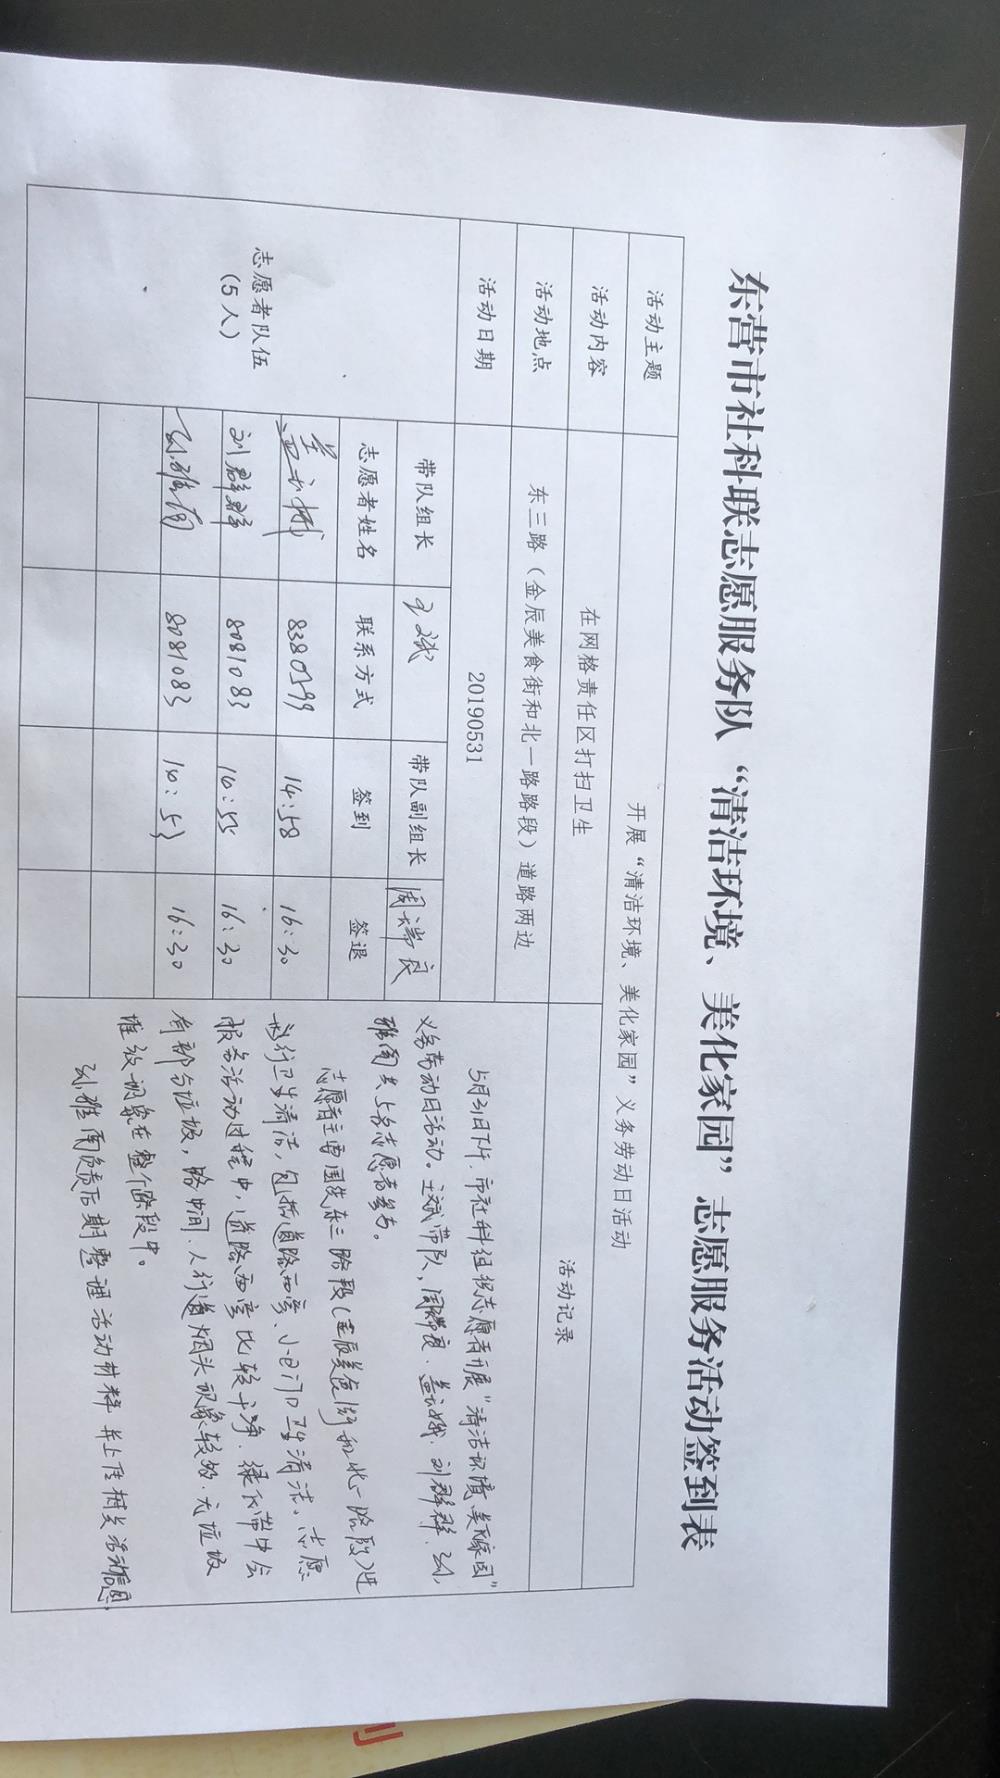 东营市社科联志愿服务队“清洁环境、美化家园”志愿服务活动签到表
活动主题 开展“清洁环境、美化家园”义务劳动日活动
活动内容 在网格责任区打扫卫生 活动记录
活动地点 东三路（金辰美食街和北一路路段）道路两边
活动日期 20190531
志愿者队伍
（5人）
带队组长 王斌 带队副组长 周瑞良
志愿者姓名 联系方式 签到 签退
8380399 14:58 16:30
刘群群 8081083 14:55 16:30
8081083 14:53 16:30
5月31日下午，市社科组织志愿者开展“清洁环境、美化家园”
义务劳动日活动。王斌带队，周瑞良、刘群群、
雅南共5名志愿者参与。
志愿者主要围绕东三路段（金辰美食街和北一路段）进
行卫生清洁，包括道路两旁、小区门口卫生清洁。志愿
服务活动过程中，道路两旁比较干净，绿化带中会
有部分垃圾，路中间、人行道烟头现象较多，无垃圾
堆放现象在整个路段中。
雅南负责后期整理活动材料并上传相关活动信息